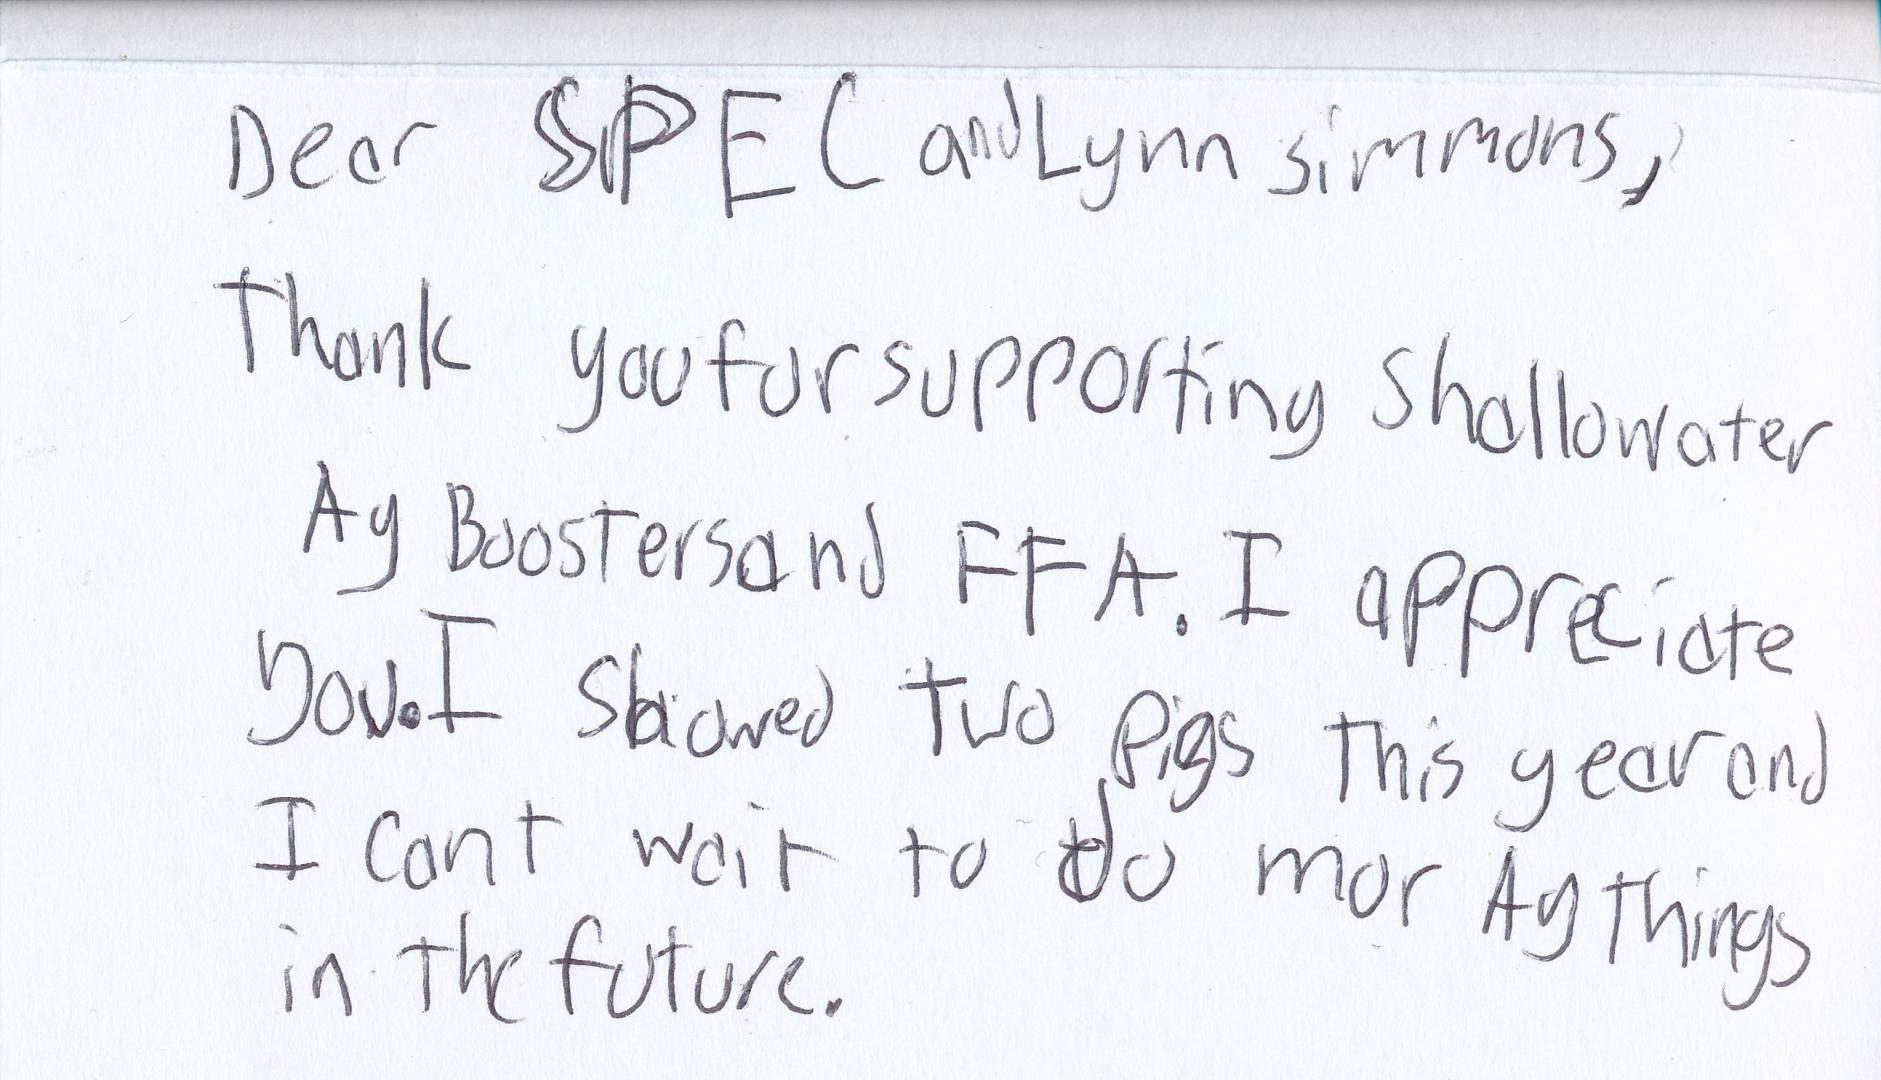 Dear SPEC and Lynn simmons,
Thank you for supporting Shallowater
Ag Boosters and FFA. I appreciate
you. I showed two pigs this year and
I cant wait to do mor Ag things
in the future.